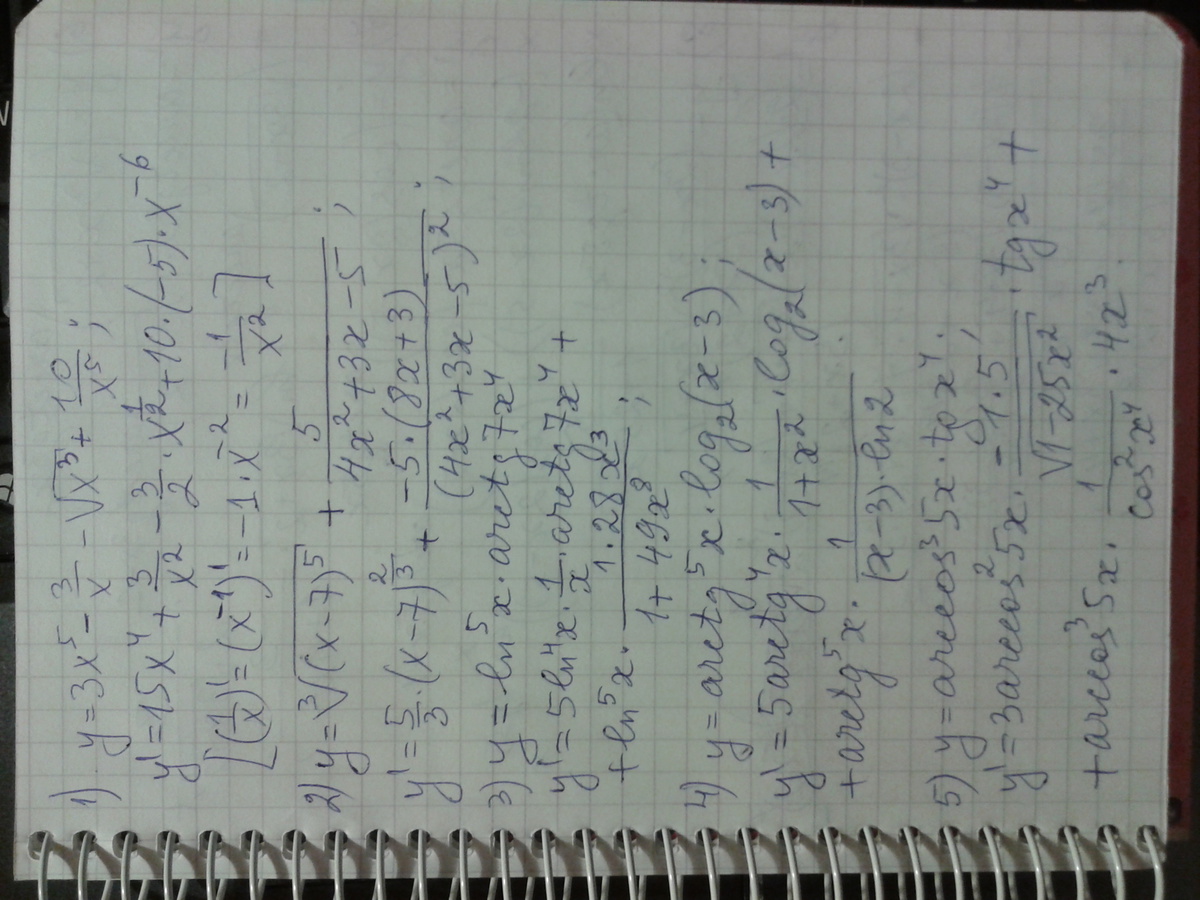 1) y = 3x⁵ - 3/x - √x³ + 10/x⁵ ;
y' = 15x⁴ + 3/x² - 3/2 · x^(1/2) + 10·(-5)·x⁻⁶
[(1/x)' = (x⁻¹)' = -1·x⁻² = -1/x²]
2) y = ³√(x-7)⁵ + 5/(4x²+3x-5) ;
y' = 5/3·(x-7)^(2/3) + -5·(8x+3)/(4x²+3x-5)² ;
3) y = ln⁵x·arctg 7x⁴
y' = 5ln⁴x·1/x·arctg 7x⁴ +
+ ln⁵x· 1·28x³/(1+49x⁸) ;
4) y = arctg⁵x·log₂(x-3) ;
y' = 5arctg⁴x· 1/(1+x²) ·log₂(x-3) +
+ arctg⁵x· 1/((x-3)·ln2)
5) y = arccos³5x·tgx⁴.
y' = 3arccos²5x· -1·5/√(1-25x²) ·tgx⁴ +
+ arccos³5x· 1/cos²x⁴ ·4x³.